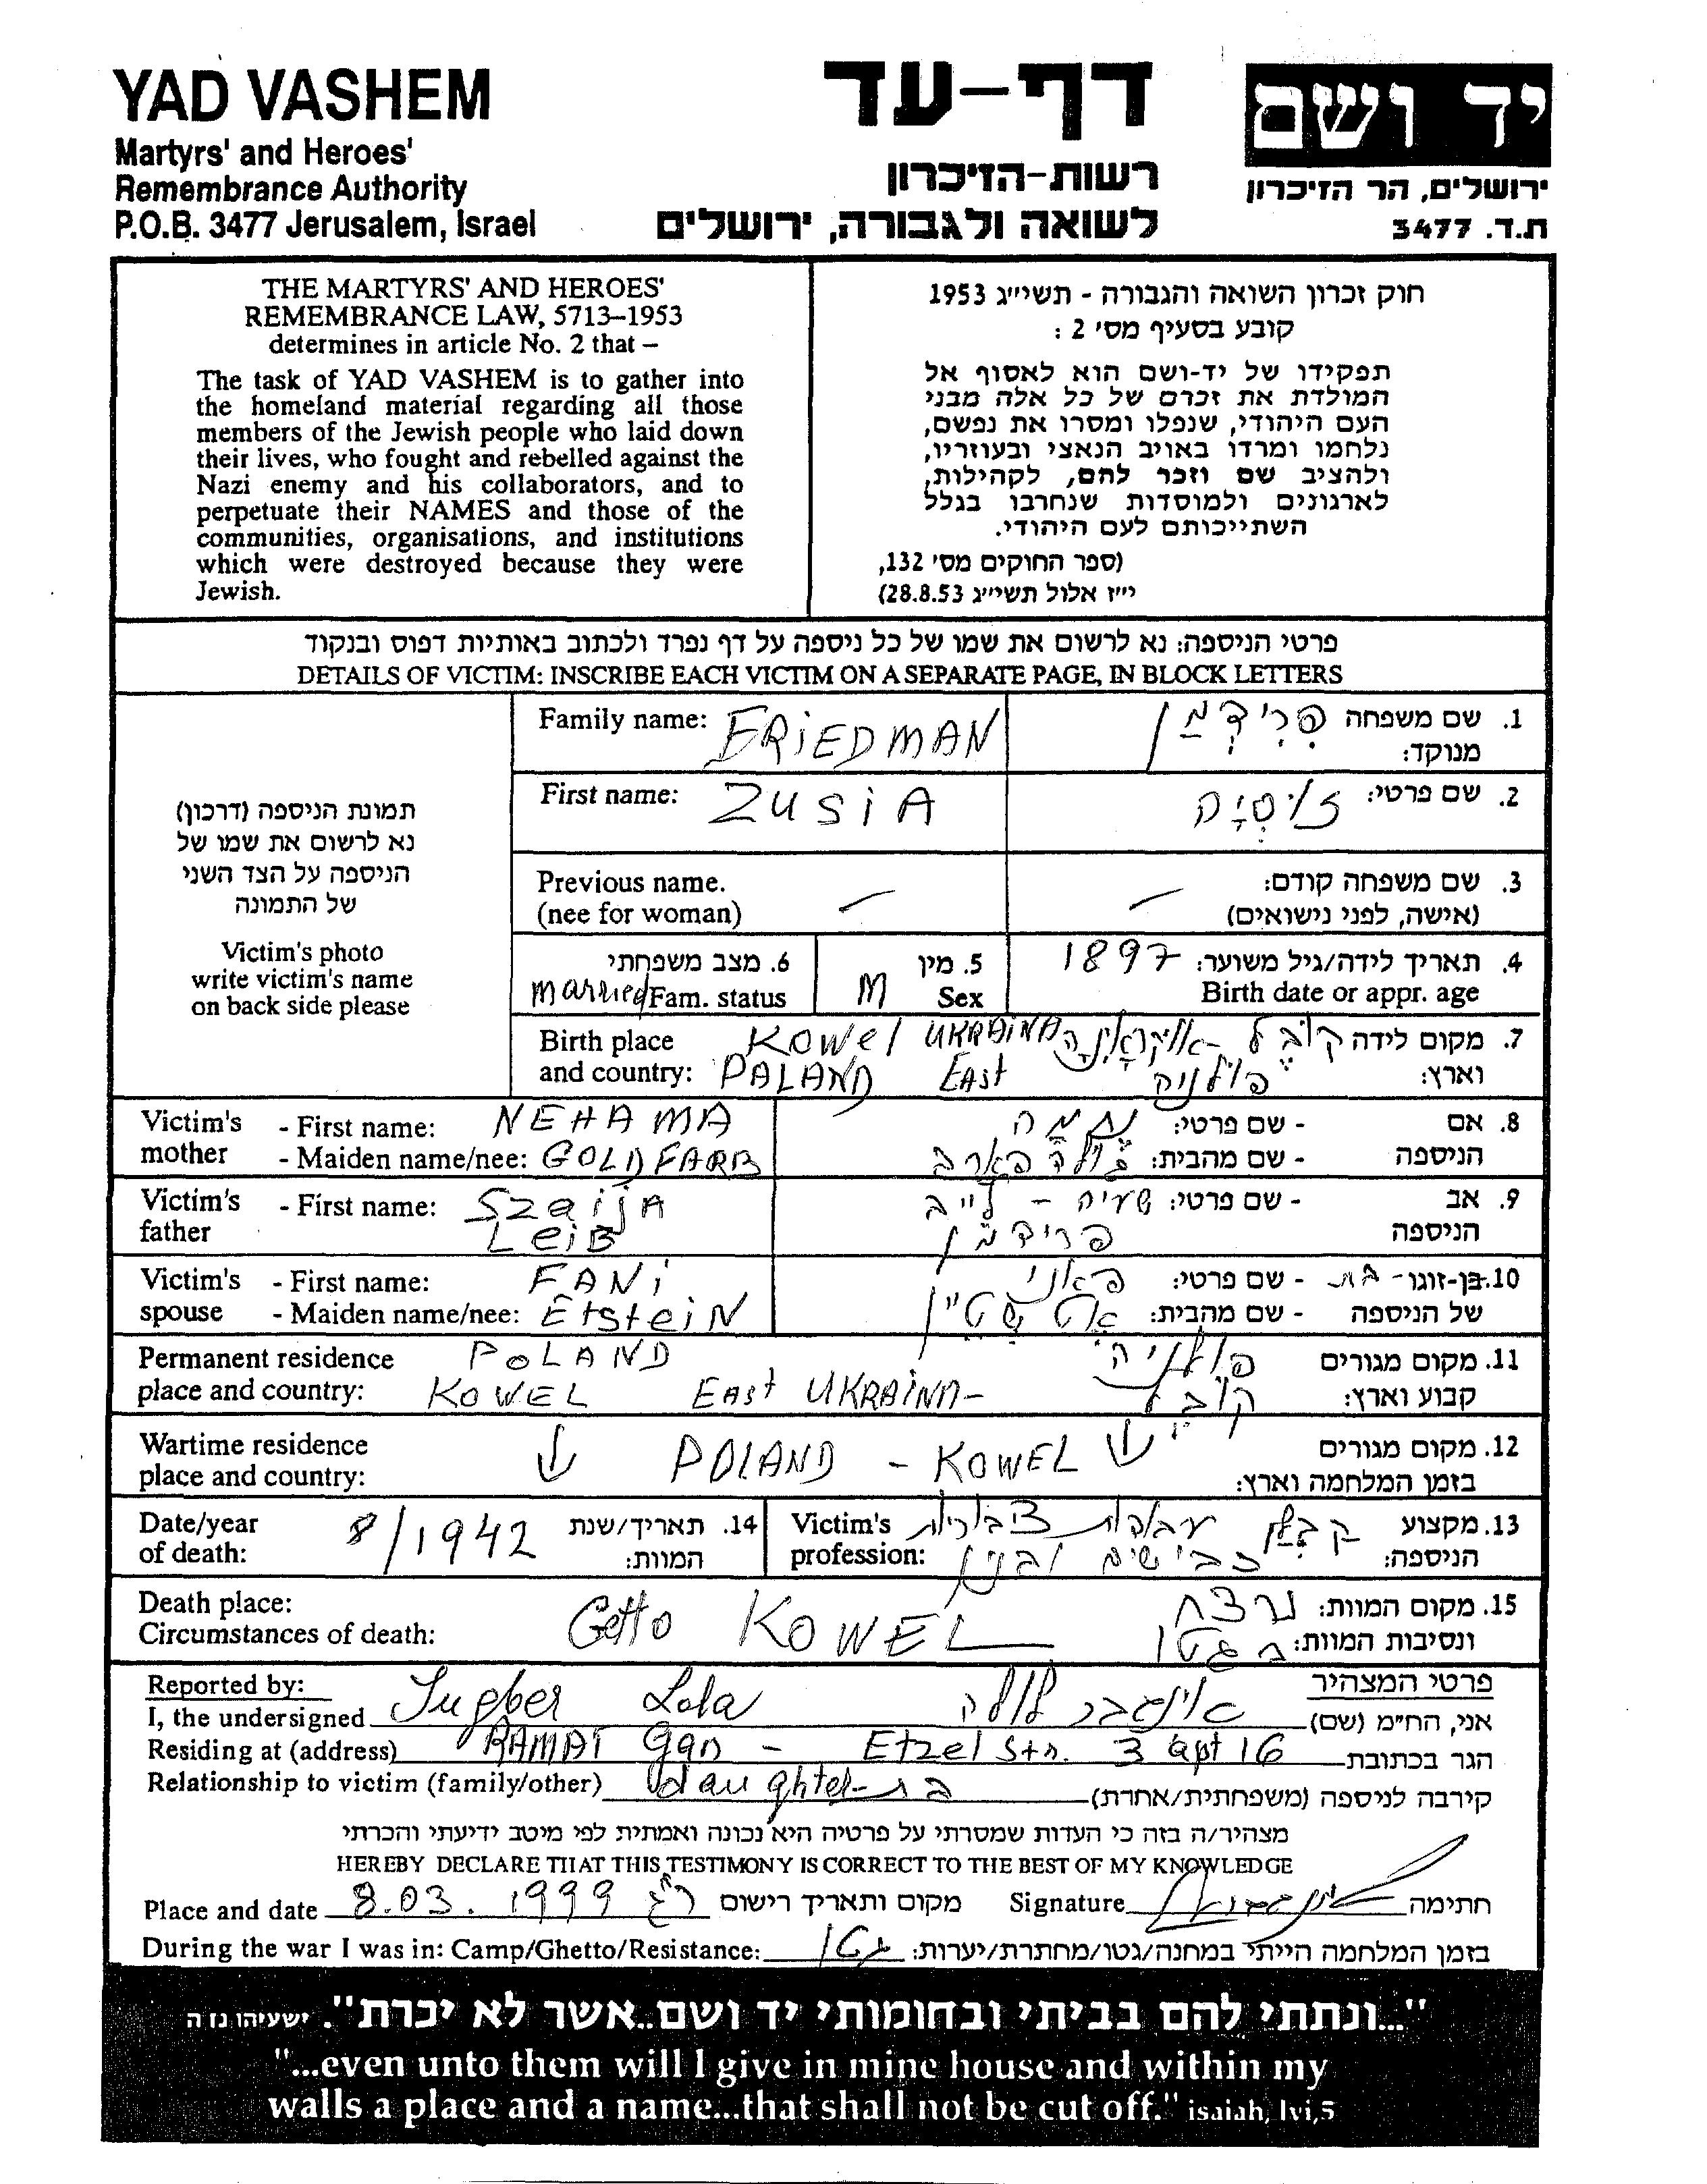 YAD VASHEM
Martyrs' and Heroes'
Remembrance Authority
P.O.B. 3477 Jerusalem, Israel
דף-עד
רשות-הזיכרון
לשואה ולגבורה, ירושלים
יד ושם
ירושלים, הר הזיכרון
ת.ד. 3477
THE MARTYRS' AND HEROES'
REMEMBRANCE LAW, 5713–1953
determines in article No. 2 that –
The task of YAD VASHEM is to gather into
the homeland material regarding all those
members of the Jewish people who laid down
their lives, who fought and rebelled against the
Nazi enemy and his collaborators, and to
perpetuate their NAMES and those of the
communities, organisations, and institutions
which were destroyed because they were
Jewish.
חוק זכרון השואה והגבורה - תשי״ג 1953
קובע בסעיף מס׳ 2 :
תפקידו של יד-ושם הוא לאסוף אל
המולדת את זכרם של כל אלה מבני
העם היהודי, שנפלו ומסרו את נפשם,
נלחמו ומרדו באויב הנאצי ובעוזריו,
ולהציב שם וזכר להם, לקהילות,
לארגונים ולמוסדות שנחרבו בגלל
השתייכותם לעם היהודי.
(ספר החוקים מס׳ 132,
י״ז אלול תשי״ג 28.8.53)
פרטי הניספה: נא לרשום את שמו של כל ניספה על דף נפרד ולכתוב באותיות דפוס ובנקוד
DETAILS OF VICTIM: INSCRIBE EACH VICTIM ON A SEPARATE PAGE, IN BLOCK LETTERS
תמונת הניספה (דרכון)
נא לרשום את שמו של
הניספה על הצד השני
של התמונה
Victim's photo
write victim's name
on back side please
Family name: FRiEDMAN
1. שם משפחה פרידמן
מנוקד:
First name: ZUSiA
2. שם פרטי: זוסיה
Previous name.
(nee for woman) –
3. שם משפחה קודם: –
(אישה, לפני נישואים)
6. מצב משפחתי
married Fam. status
5. מין
M Sex
4. תאריך לידה/גיל משוער: 1897
Birth date or appr. age
Birth place Kowel UKRAINA
and country: PALAND EAst
7. מקום לידה קובל - אוקראינה
וארץ: פולניה
Victim's mother - First name: NEHAMA
- Maiden name/nee: GOLDFARB
8. אם הניספה - שם פרטי: נחמה
- שם מהבית: גולדפארב
Victim's father - First name: Szaija
Leib
9. אב הניספה - שם פרטי: שעיה - לייב
פרידמן
Victim's spouse - First name: FANi
- Maiden name/nee: EtsteiN
10. בן-זוגו - בת - שם פרטי: פאני
של הניספה - שם מהבית: אטשטיין
Permanent residence POLAND
place and country: KOWEL EAst UKRAiNA-
11. מקום מגורים פולניה
קבוע וארץ: קובל
Wartime residence
place and country: ↓ POLAND - KOWEL ↓
12. מקום מגורים
בזמן המלחמה וארץ:
Date/year
of death: 8/1942
14. תאריך/שנת
המוות:
Victim's
profession:
13. מקצוע קבלן עבודות ציבוריות
הניספה: כבישים ובנין
Death place:
Circumstances of death: Getto KOWEL
15. מקום המוות: נרצח
ונסיבות המוות: בגטו
Reported by:
פרטי המצהיר
I, the undersigned Jugber Lola
אני, החי״מ (שם) אינגבר לולה
Residing at (address) RAMAT Gan - Etzel Str. 3 apt 16 הגר בכתובת
Relationship to victim (family/other) daughter - בת קירבה לניספה (משפחתית/אחרת)
מצהיר/ה בזה כי העדות שמסרתי על פרטיה היא נכונה ואמתית לפי מיטב ידיעתי והכרתי
HEREBY DECLARE THAT THIS TESTIMONY IS CORRECT TO THE BEST OF MY KNOWLEDGE
Place and date 8.03.1999 ר״ג מקום ותאריך רישום Signature חתימה
During the war I was in: Camp/Ghetto/Resistance: גטו בזמן המלחמה הייתי במחנה/גטו/מחתרת/יערות:
"...ונתתי להם בביתי ובחומותי יד ושם..אשר לא יכרת". ישעיהו נו ה
"...even unto them will I give in mine house and within my
walls a place and a name...that shall not be cut off." isaiah, lvi,5